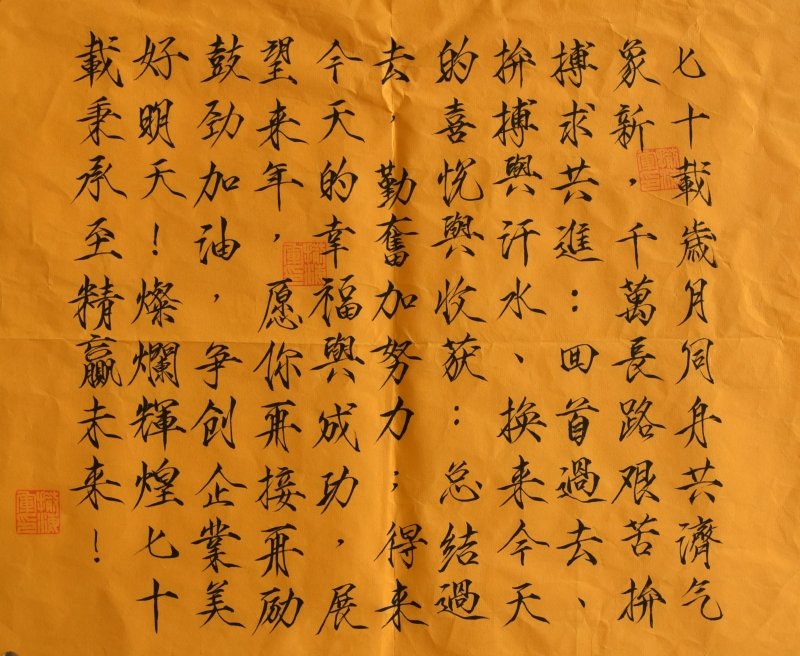 七十載歲月同舟共濟气
象新，千萬長路艰苦拚
搏求共進：回首過去、
拚搏與汗水、换来今天
的喜悅與收获：总结過
去，勤奮加努力；得来
今天的幸福與成功，展
望来年，愿你再接再励
鼓劲加油，争创企業美
好明天！燦爛輝煌七十
載秉承至精贏未来！